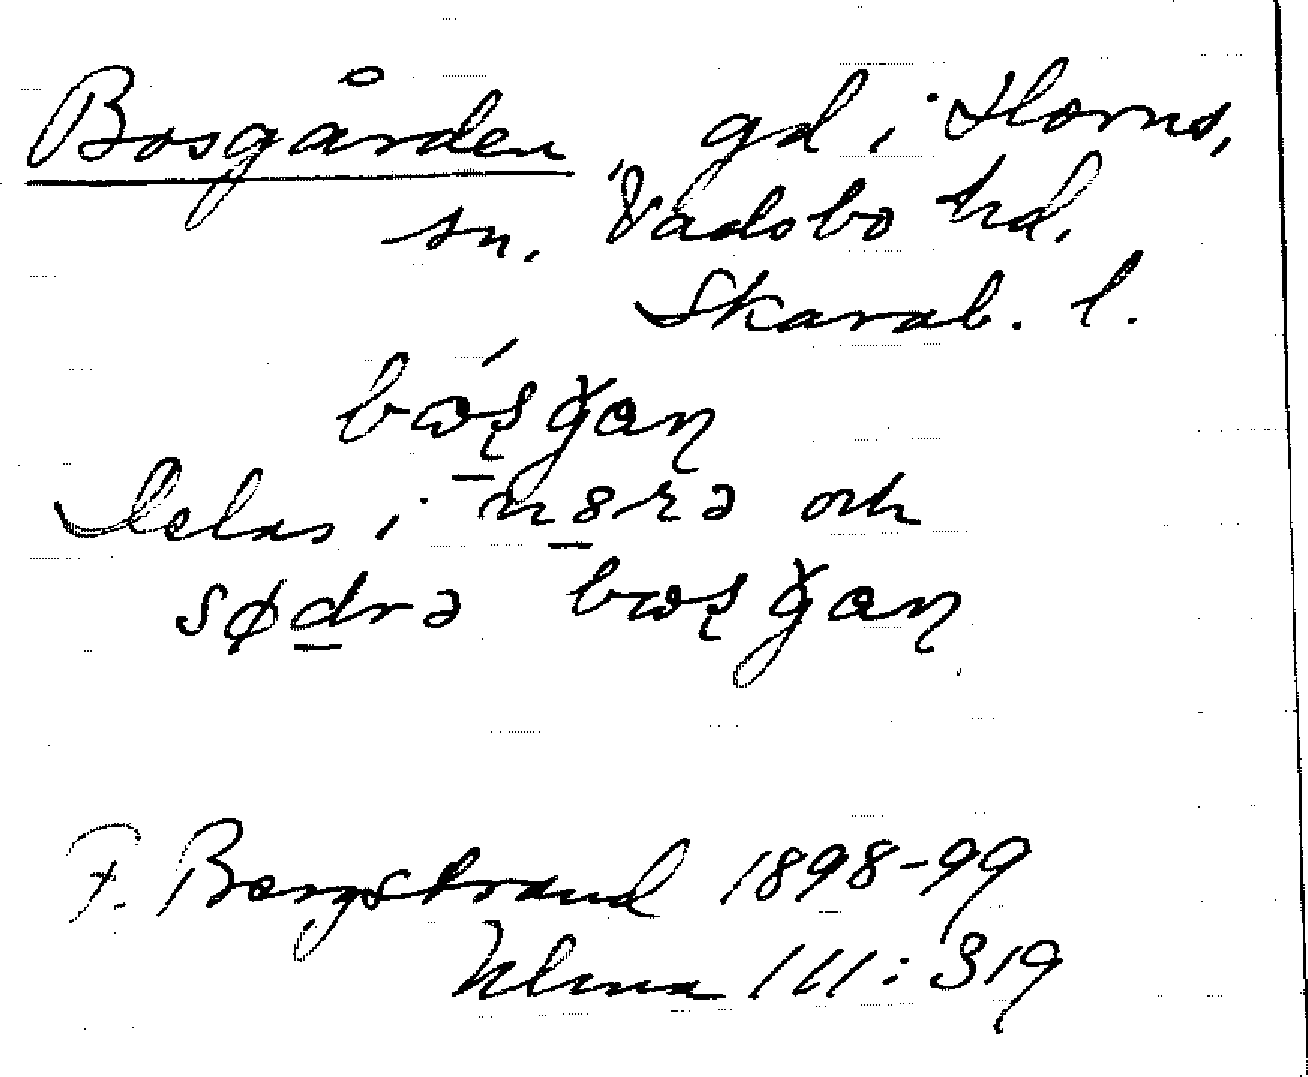 Bosgården gd i Horns,
sn. Vadsbo hd.
Skarab. l.
Delas i n8rə och
sødrə
F. Bergstrand 1898-99
Ulma 111:319